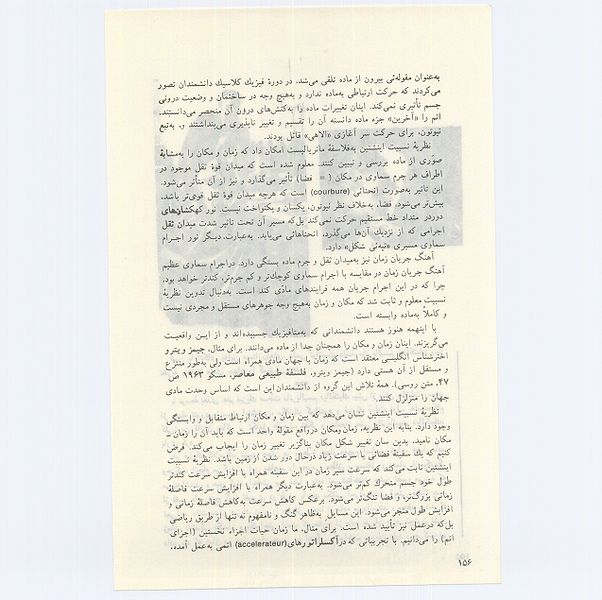 به‌عنوان مقوله‌ئی بیرون از ماده تلقی می‌شد. در دورهٔ فیزیك كلاسیك دانشمندان تصور
می‌كردند كه حركت ارتباطی به‌ماده ندارد و به‌هیچ وجه در ساختمان و وضعیت درونی
جسم تأثیری نمی‌كند. اینان تغییرات ماده را به‌كنش‌های درون آن منحصر می‌دانستند،
اتم را «آخرین» جزء ماده دانسته آن را تقسیم و تغییر ناپذیری می‌پنداشتند و، به‌تبع
نیوتون، برای حركت سر آغازی «الاهی» قائل بودند.
نظریهٔ نسبیت اینشتین به‌فلاسفهٔ ماتریالیست امكان داد كه زمان و مكان را به‌مشابهٔ
صوری از ماده بررسی و تبیین كنند. معلوم شده است كه میدان قوهٔ ثقل موجود در
اطراف هر جرم سماوی در مكان ( = فضا) تأثیر می‌گذارد و نیز از آن متأثر می‌شود.
این تاثیر به‌صورت انحنائی (courbure) است كه هرچه میدان قوهٔ ثقل قوی‌تر باشد،
بیش‌تر می‌شود. فضا، به‌خلاف نظر نیوتون، یكسان و یكنواخت نیست. نور كهكشان‌های
دوردر متداد خط مستقیم حركت نمی‌كند بل‌كه مسیر آن تحت تاثیر شدت میدان ثقل
اجرامی كه از نزدیك آن‌ها می‌گذرد، انحناهائی می‌یابد. به‌عبارت‌دیگر نور اجرام
سماوی مسیری «تپه‌ئی شكل» دارد.
آهنگ جریان زمان نیز به‌میدان ثقل و جرم ماده بستگی دارد. دراجرام سماوی عظیم
آهنگ جریان زمان در مقایسه با اجرام سماوی كوچك‌تر و كم جرم‌تر، كندتر خواهد بود.
چرا كه در این اجرام جریان همه فرایندهای مادّی كند است. به‌دنبال تدوین نظریهٔ
نسبیت معلوم و ثابت شد كه مكان و زمان به‌هیچ وجه جوهرهای مستقل و مجردی نیست
و كاملاً به‌ماده وابسته است.
با اینهمه هنوز هستند دانشمندانی كه به‌متافیزیك چسبیده‌اند و از ایـن واقعیـت
می‌گریزند. اینان زمان و مكان را همچنان جدا از ماده می‌دانند. برای مثال، جیمز ویترو
اخترشناس انگلیسی معتقد است كه زمان با جهان مادی همراه است ولی به‌طور منتزع
و مستقل از آن هستی دارد (جیمز ویترو، فلسفهٔ طبیعی معاصر، مسكو ۱۹۶۳ ص
۴۷، متن روسی). همهٔ تلاش این گروه از دانشمندان این است كه اساس وحدت مادی
جهان را متزلزل كنند.
نظریهٔ نسبیت اینشتین نشان می‌دهد كه بین زمان و مكان ارتباط متقابل و وابستگی
وجود دارد. بنابه این نظریه، زمان‌ومكان درواقع مقولهٔ واحد است كه باید آن را زمان –
مكان نامید. بدین سان تغییر شكل مكان بناگزیر تغییر زمان را ایجاب می‌كند. فرض
كنیم كه یك سفینهٔ فضائی با سرعت زیاد درحال دور شدن از زمین باشد. نظریهٔ نسبیت
اینشتین ثابت می‌كند كه سرعت سیر زمان در این سفینه همراه با افزایش سرعت كندتر
طول خود جسم متحرك كم‌تر می‌شود. به‌عبارت دیگر همراه با افزایش سرعت فاصلهٔ
زمانی بزرگ‌تر، و فضا تنگ‌تر می‌شود. برعكس كاهش سرعت به‌كاهش فاصلهٔ زمانی و
افزایش طول منجر می‌شود. این مسایل به‌ظاهر گنگ و نامفهوم نه تنها از طریق ریاضی
بل‌كه درعمل نیز تأیید شده است. برای مثال، ما زمان حیات اجزاء نخستین (اجزای
اتم) را می‌دانیم. با تجربیاتی كه درآكسلراتورهای(accelerateur) اتمی به‌عمل آمده،
۱۵۶